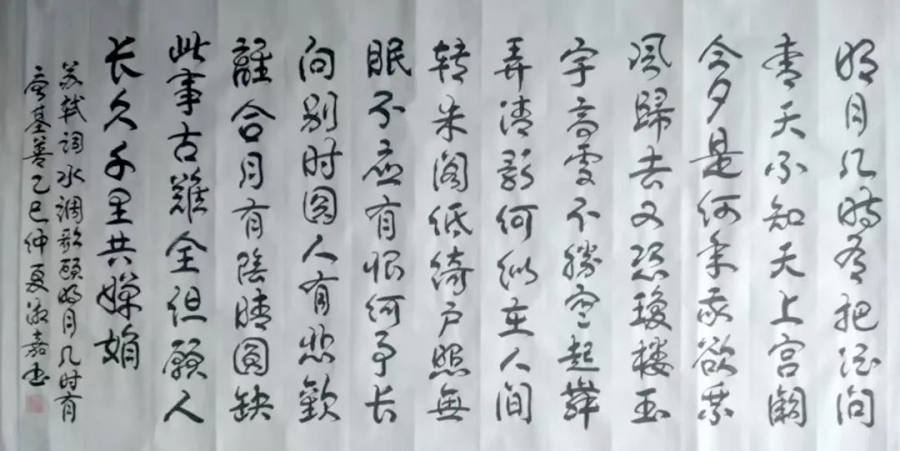 明月几時有把酒问
青天不知天上宫阙
今夕是何年我欲乘
风歸去又恐瓊楼玉
宇高處不勝寒起舞
弄清影何似在人间
转朱阁低绮户照無
眠不应有恨何事长
向别时圆人有悲歡
離合月有陰晴圆缺
此事古難全但願人
长久千里共婵娟
苏轼词水调歌头明月几时有
基善乙巳仲夏淑嘉书